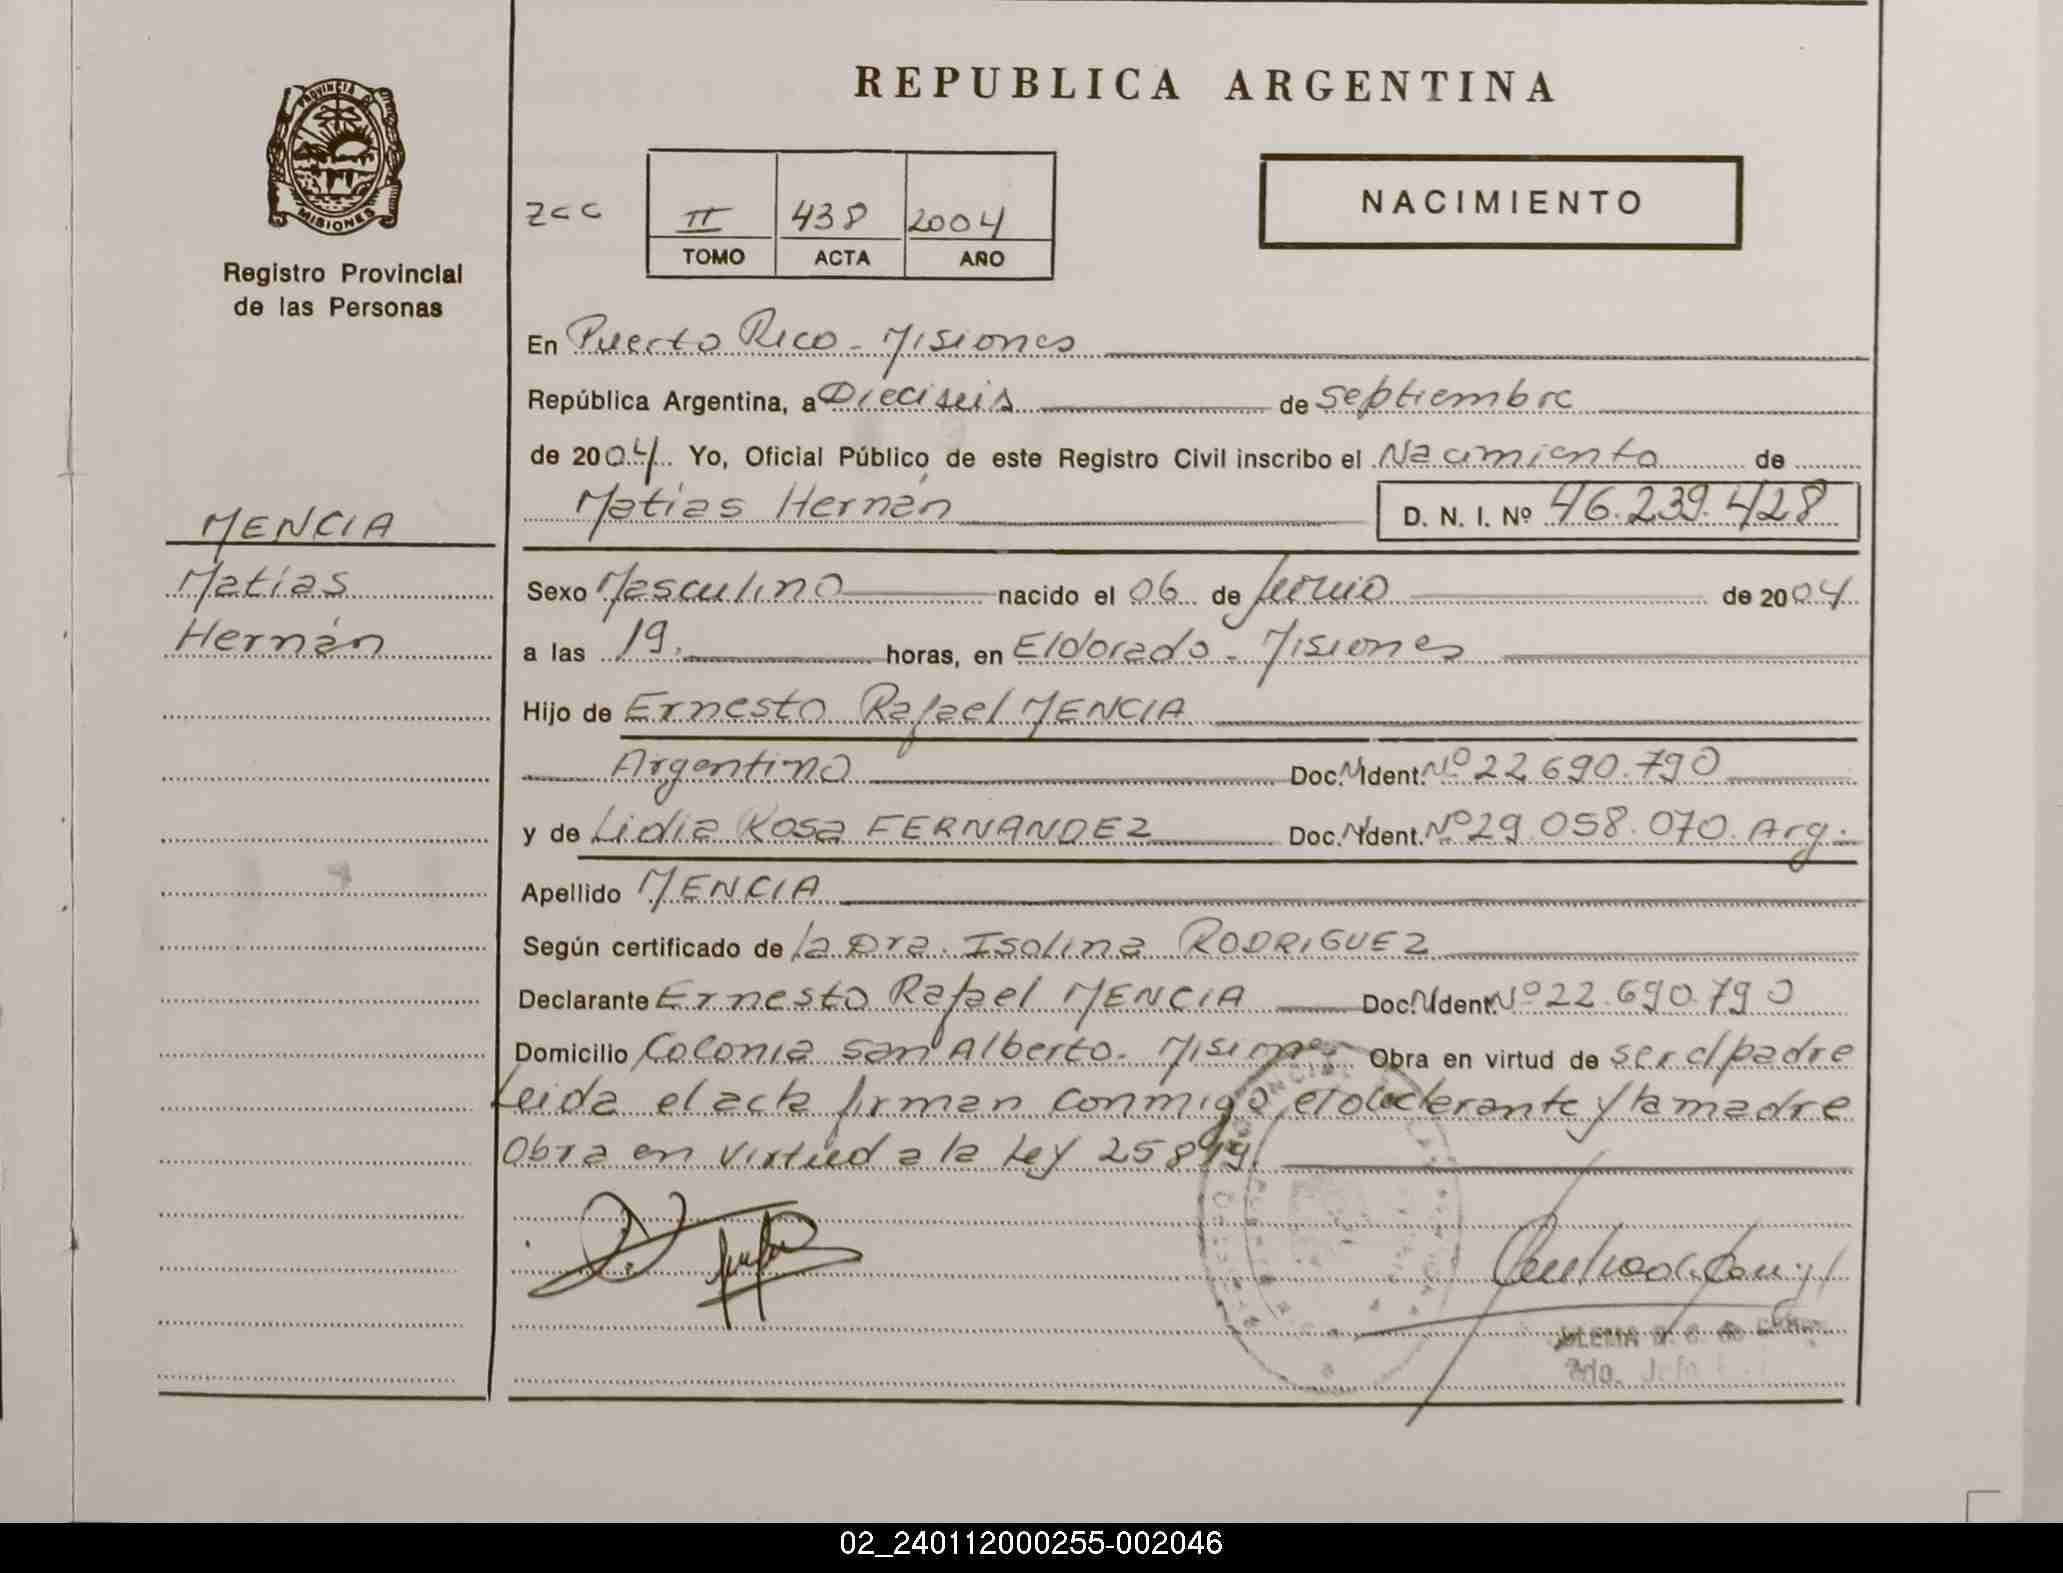 REPUBLICA ARGENTINA
PROVINCIA DE
MISIONES
Registro Provincial
de las Personas
zcc
II 438 2004
TOMO ACTA AÑO
NACIMIENTO
En Puerto Rico - Misiones
República Argentina, a Dieciseis de septiembre
de 2004 Yo, Oficial Público de este Registro Civil inscribo el Nacimiento de
Matias Hernán D. N. I. Nº 46.239.428
MENCIA
Matías
Hernán
Sexo Masculino nacido el 06 de Junio de 2004
a las 19. horas, en Eldorado - Misiones
Hijo de Ernesto Rafael MENCIA
Argentino Doc. N. Ident. Nº 22.690.790
y de Lidia Rosa FERNANDEZ Doc. N. Ident. Nº 29.058.070. Arg.
Apellido MENCIA
Según certificado de la Dra. Isolina RODRIGUEZ
Declarante Ernesto Rafael MENCIA Doc. N. Ident. Nº 22.690.790
Domicilio Colonia San Alberto - Misiones Obra en virtud de ser el padre
Leida el acta firman conmigo, el declarante y la madre
Obra en virtud a la Ley 25819.
02_240112000255-002046